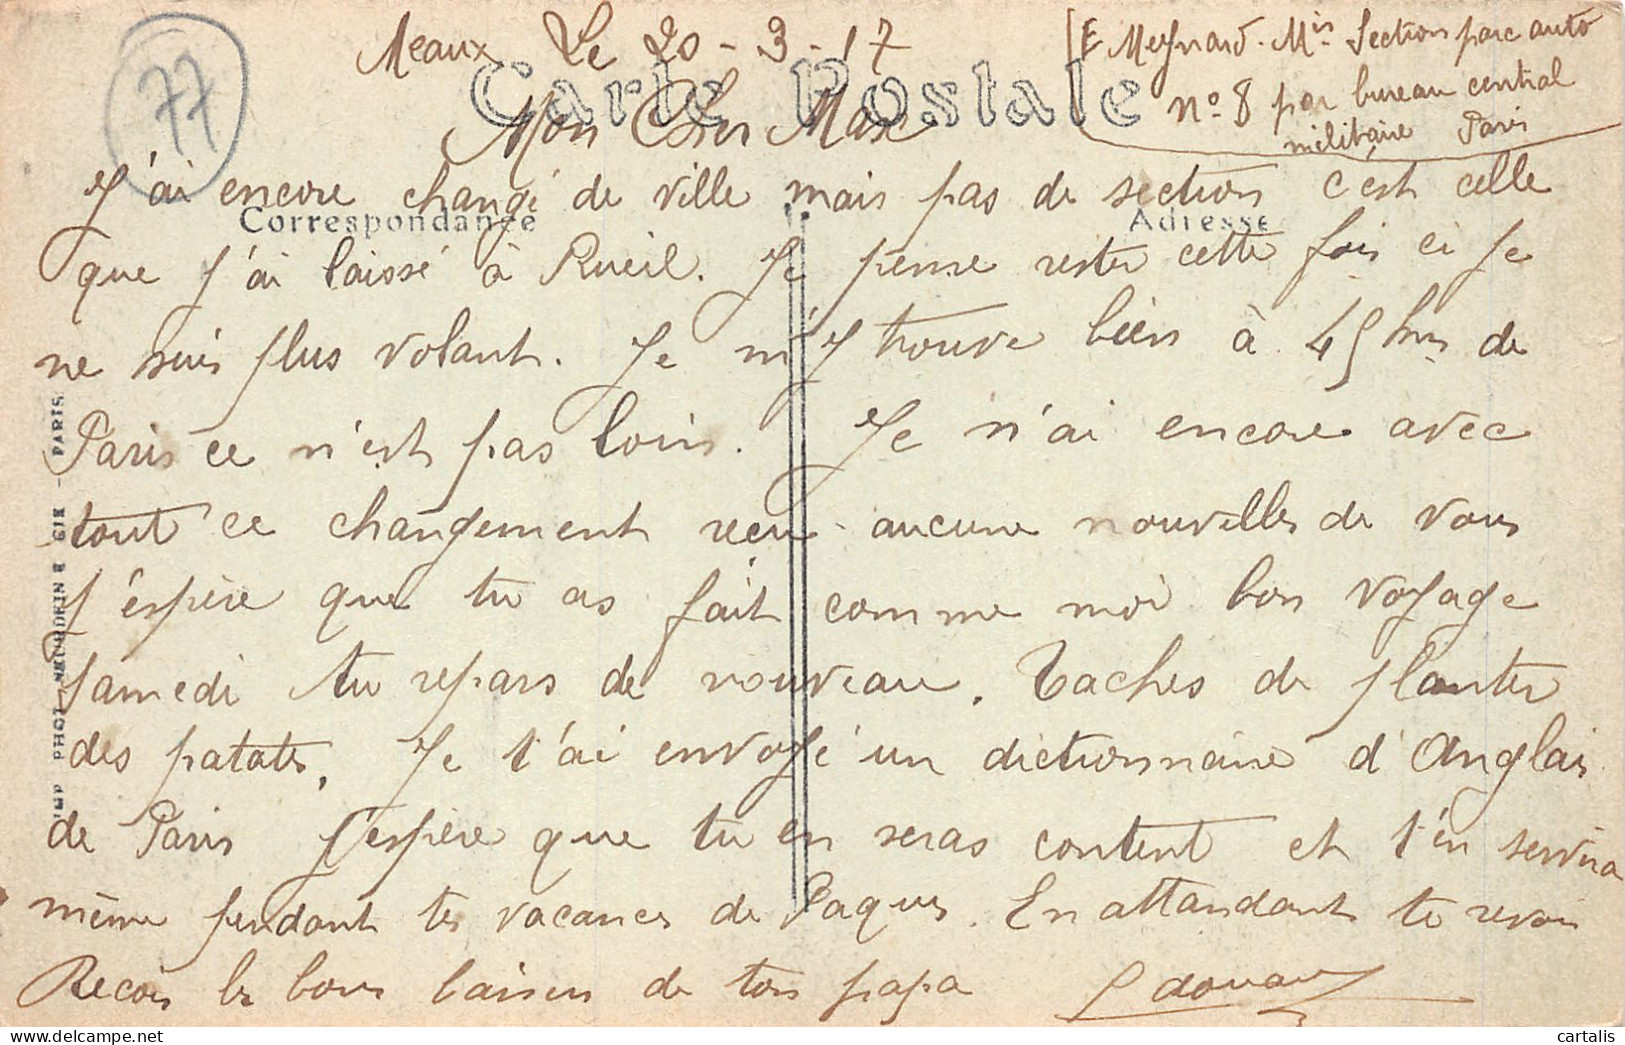 77
Meaux Le 20-3-17
E Meynard. Min Section parc auto
n° 8 par bureau central
militaire Paris
Carte Postale
Mon Cher Max
J'ai encore changé de ville mais pas de section c'est celle
Correspondance
Adresse
que j'ai laissé à Rueil. Je pense rester cette fois ci je
ne suis plus volant. Je m'y trouve bien à 45 kms de
Paris ce n'est pas loin. Je n'ai encore avec
tout ce changement reçu aucune nouvelles de vous
j'espère que tu as fait comme moi bon voyage
samedi tu repars de nouveau. Taches de planter
des patates. Je t'ai envoyé un dictionnaire d'Anglais
de Paris j'espère que tu en seras content et t'en servira
même pendant tes vacances de Paques. En attandant te revoir
Reçois les bons baisers de ton papa Edouard
IMP PHOT NEURDEIN E CIE - PARIS
cartalis